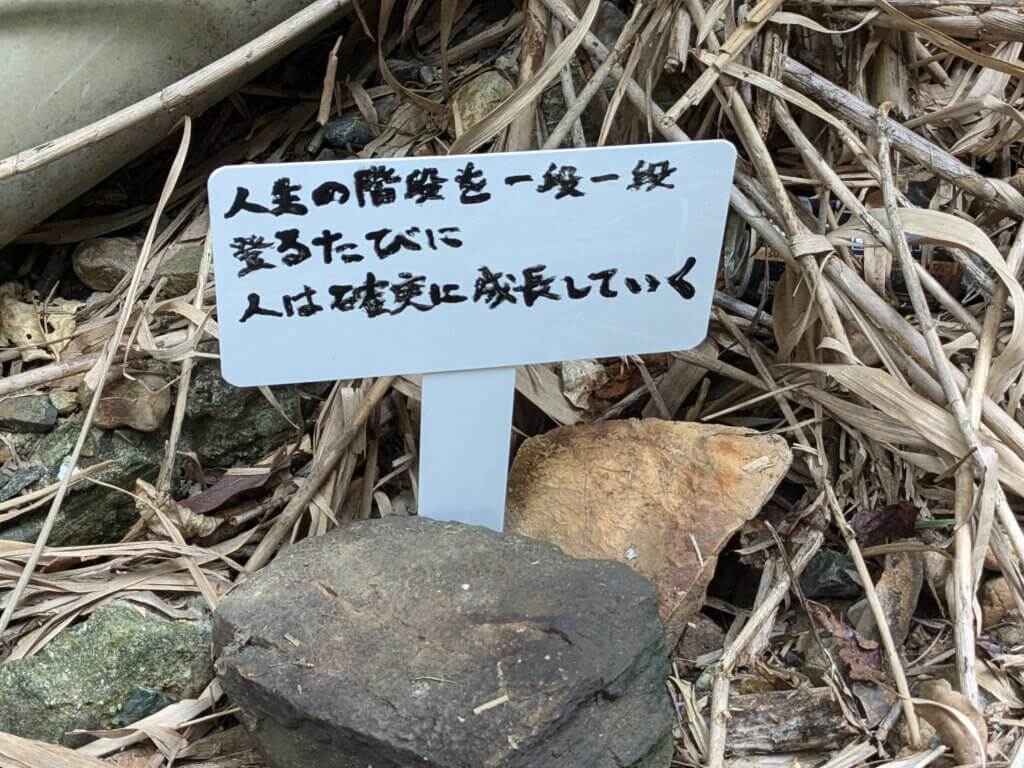 人生の階段を一段一段
登るたびに
人は確実に成長していく